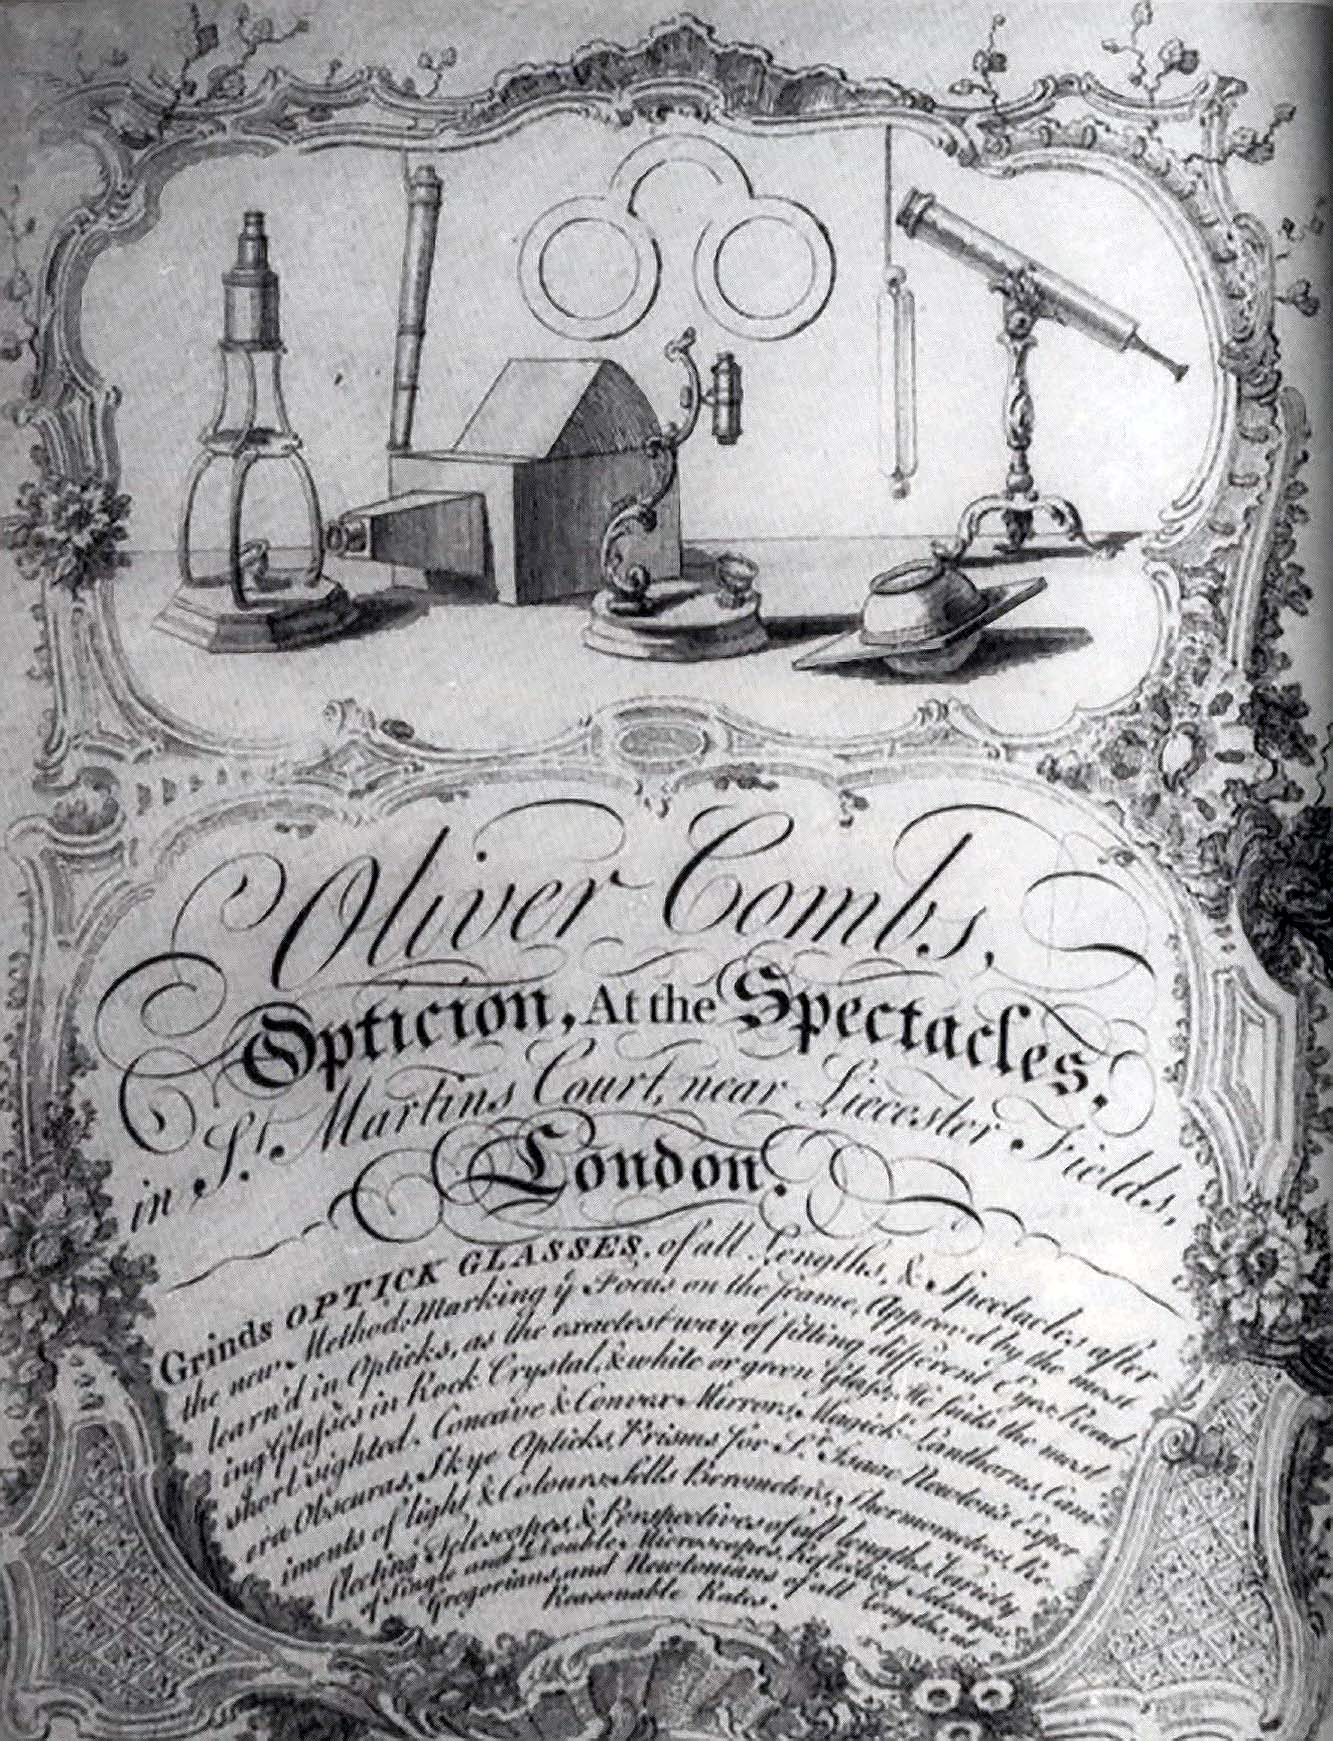 Oliver Combs,
Opticion, At the Spectacles,
in St. Martins Court, near Liecester Fields,
London.
Grinds OPTICK GLASSES, of all Lengths, & Spectacles after
the new Method, Marking ye Focus on the frame, Approv'd by the most
learn'd in Opticks, as the exactest way of fitting different Eyes, Read-
ing Glasses in Rock Crystal, & white or green Glass, He suits the most
short sighted. Concave & Convex Mirrors, Magick Lanthorns, Cam-
era Obscuras, Skye Opticks, Prisms for Sr. Isaac Newton's Exper
iments of light & Colours, Sells Barometers, Thermometers, Re-
flecting Telescopes, & Perspectives of all lengths, Variety
of single and Double Microscopes, Reflecting Telescopes,
Gregorians, and Newtonians of all lengths, at
Reasonable Rates.